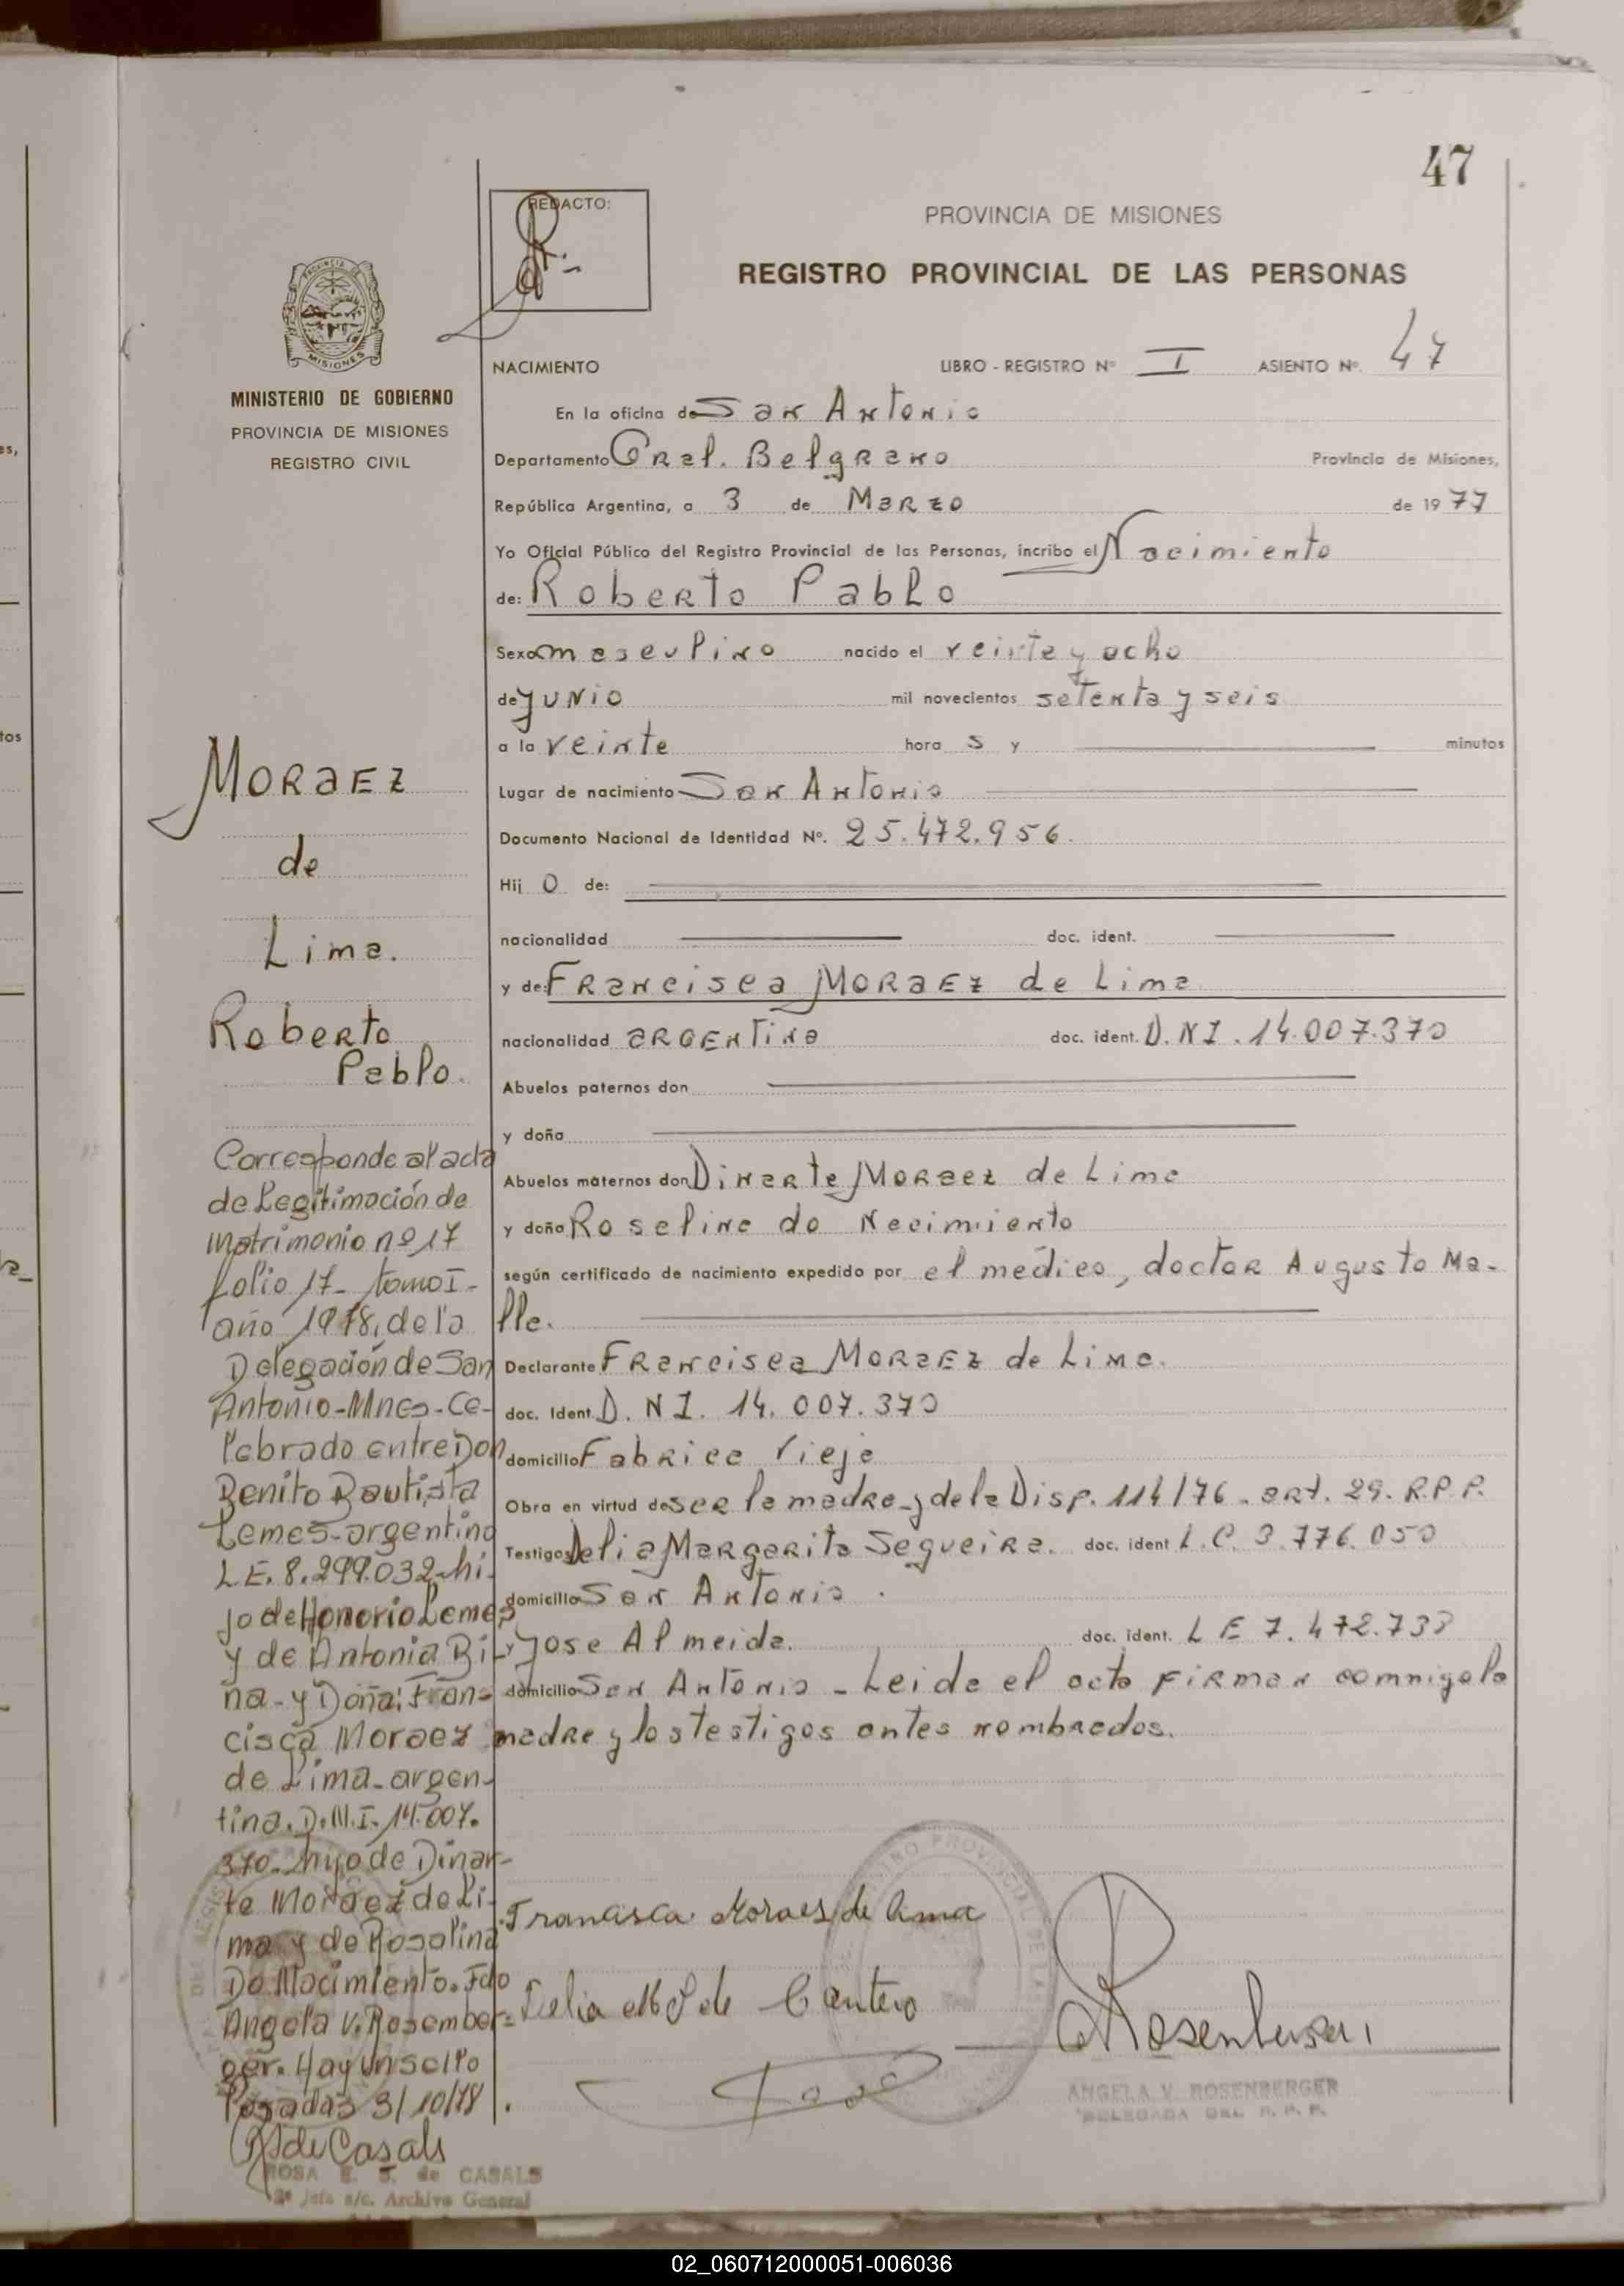 47
REDACTO:
PROVINCIA DE MISIONES
REGISTRO PROVINCIAL DE LAS PERSONAS
MINISTERIO DE GOBIERNO
PROVINCIA DE MISIONES
REGISTRO CIVIL
NACIMIENTO LIBRO - REGISTRO Nº I ASIENTO Nº 47
En la oficina de San Antonio
Departamento Gral. Belgrano Provincia de Misiones,
República Argentina, a 3 de Marzo de 1977
Yo Oficial Público del Registro Provincial de las Personas, incribo el Nacimiento
de: Roberto Pablo
Sexo masculino nacido el veinte y ocho
de junio mil novecientos setenta y seis
a la veinte hora s y minutos
Lugar de nacimiento San Antonio
Documento Nacional de Identidad Nº. 25.472.956.
Hij o de:
nacionalidad doc. ident.
y de: Francisca Moraez de Lima
nacionalidad argentina doc. ident. D.N I. 14.007.370
Abuelos paternos don
y doña
Abuelos maternos don Dinarte Moraez de Lima
y doña Roselina do Nacimiento
según certificado de nacimiento expedido por el médico, doctor Augusto Ma-
lle.
Declarante Francisca Moraez de Lima.
doc. Ident. D. N I. 14. 007. 370
domicilio Fabrica Vieja
Obra en virtud de ser la madre y de la Disp. 114/76. art. 29. R.P.P.
Testigos Delia Margarita Segueira. doc. ident L.C. 3.776.050
domicilio San Antonio.
y Jose Almeida. doc. ident. L E 7.472.733
domicilio San Antonio - Leida el acta firman comnigo la
madre y los testigos antes nombrados.
Moraez
de
Lima.
Roberto
Pablo.
Corresponde al acta
de Legitimación de
matrimonio nº 17
folio 17- tomo I-
año 1978, de la
Delegación de San
Antonio-Mnes-Ce-
lebrado entre Don
Benito Bautista
Lemes-argentino
L.E. 8.299.032-hi-
jo de Honorio Lemes
y de Antonia Bi-
na-y Doña: Fran-
cisca Moraez
de Lima-argen-
tina. D.N.I. 14.007.
370-hijo de Dinar-
te Moraez de Li-
ma y de Rosalina
Do Nacimiento. Fdo
Angela V. Rosember-
ger. Hay un sello
Posadas 3/10/78.
Francisca Moraes de Lima
Delia M S de Cantero
José
Rosenberger
ANGELA V. ROSENBERGER
DELEGADA DEL R. P. P.
de Casals
ROSA E. S. de CASALS
2ª Jefa a/c. Archivo General
02_060712000051-006036